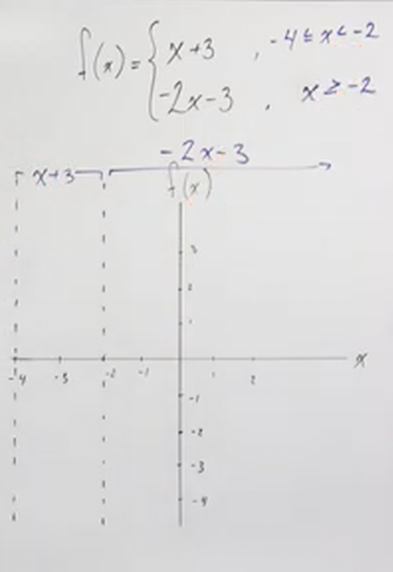 f(x) = { x+3 , -4 ≤ x < -2
-2x-3 , x ≥ -2
-2x-3
x+3
f(x)
3
2
1
-4 -3 -2 -1 1 2 x
-1
-2
-3
-4